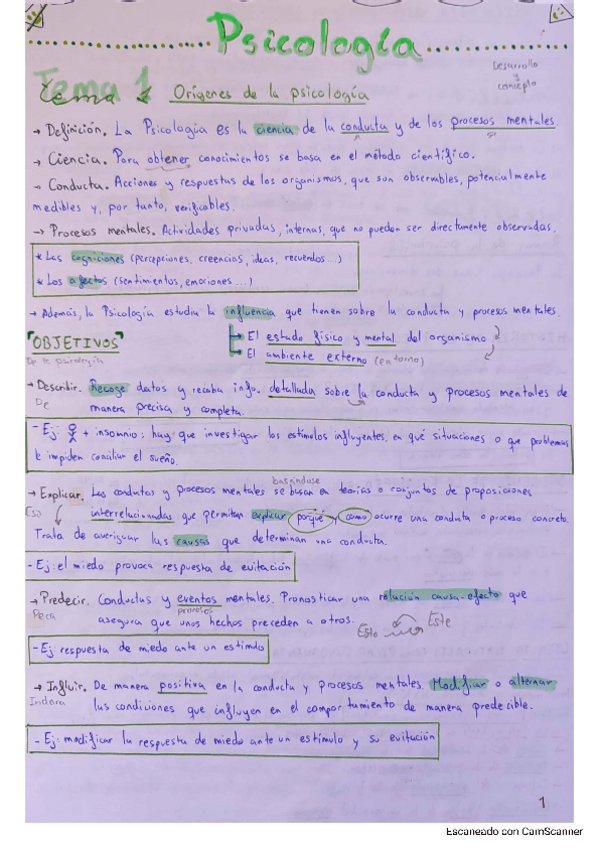 Psicología
Desarrollo
y
concepto
Tema 1
Orígenes de la psicología
→ Definición. La Psicología es la ciencia de la conducta y de los procesos mentales.
→ Ciencia. Para obtener conocimientos se basa en el método científico.
→ Conducta. Acciones y respuestas de los organismos, que son observables, potencialmente
medibles y, por tanto, verificables.
→ Procesos mentales. Actividades privadas, internas, que no pueden ser directamente observadas.
* Las cogniciones (percepciones, creencias, ideas, recuerdos...)
* Los afectos (sentimientos, emociones...)
→ Además, la Psicología estudia la influencia que tienen sobre la conducta y procesos mentales.
El estado físico y mental del organismo
El ambiente externo (entorno)
OBJETIVOS
De la psicología
→ Describir. Recoge datos y recaba info. detallada sobre la conducta y procesos mentales de
De
manera precisa y completa.
- Ej: + insomnio: hay que investigar los estímulos influyentes, en qué situaciones o que problemas
le impiden conciliar el sueño.
basándose
→ Explicar. Las conductas y procesos mentales se basan en teorías o conjuntos de proposiciones
Eso
interrelacionadas que permitan explicar porqué y como ocurre una conducta o proceso concreto.
Trata de averiguar las causas que determinan una conducta.
- Ej: el miedo provoca respuesta de evitación
→ Predecir. Conductas y eventos mentales. Pronosticar una relación causa-efecto que
procesos
asegura que unos hechos preceden a otros.
Esto Este
- Ej: respuesta de miedo ante un estímulo
→ Influir. De manera positiva en la conducta y procesos mentales. Modificar o alternar
las condiciones que influyen en el comportamiento de manera predecible.
- Ej: modificar la respuesta de miedo ante un estímulo y su evitación
1
Escaneado con CamScanner